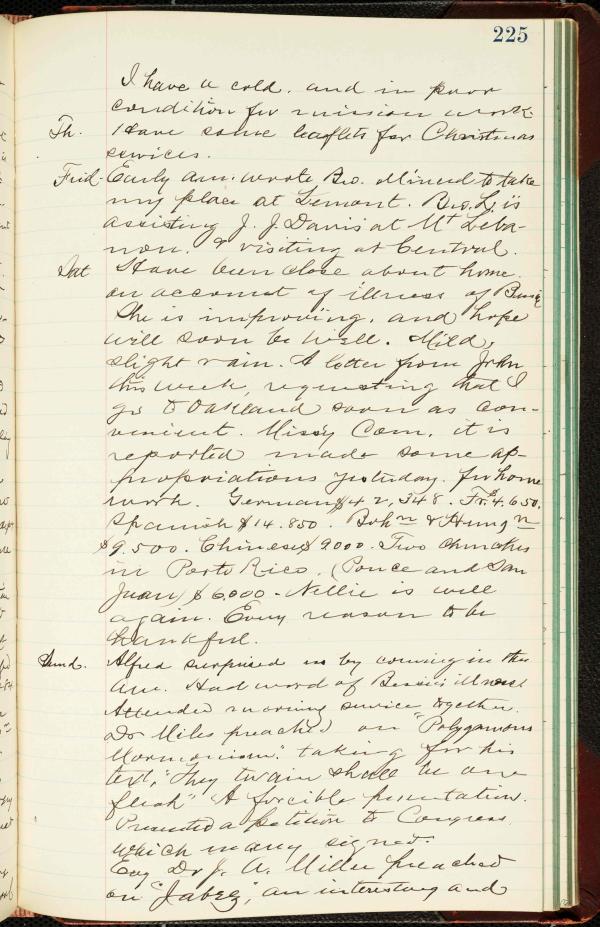 225
I have a cold, and in poor
condition for mission work.
Th. Have some leaflets for Christmas
services.
Frid. Early am. wrote Bro. to take
my place at Lemont. Bro. L. is
assisting J. J. Davis at Mt Leba-
non. & visiting at Central.
Sat Have been close about home
on account of illness of
She is improving, and hope
will soon be well. Mild,
slight rain. A letter from John
this week, requesting that I
go to Oakland soon as con-
venient. Missy Com. it is
reported made some ap-
propriations yesterday. for home
work. German $42,548. Fr. $4.650.
Spanish $14.850. Bohn & Hungn
$9.500. Chinese $2000. Two churches
in Porto Rico, (Ponce and San
Juan) $6000 - Nellie is well
again. Every reason to be
thankful.
Sund. Alfred surprised us by coming in this
am. Had word of Bessie's illness
Attended morning service together.
Dr Miles preached on "Polygamous
Mormonism." taking for his
text, "They twain shall be one
flesh" A forcible presentation.
Presented a petition to Congress,
which many signed.
Evg Dr J. A. Miller preached
on "Jabez", an interesting and